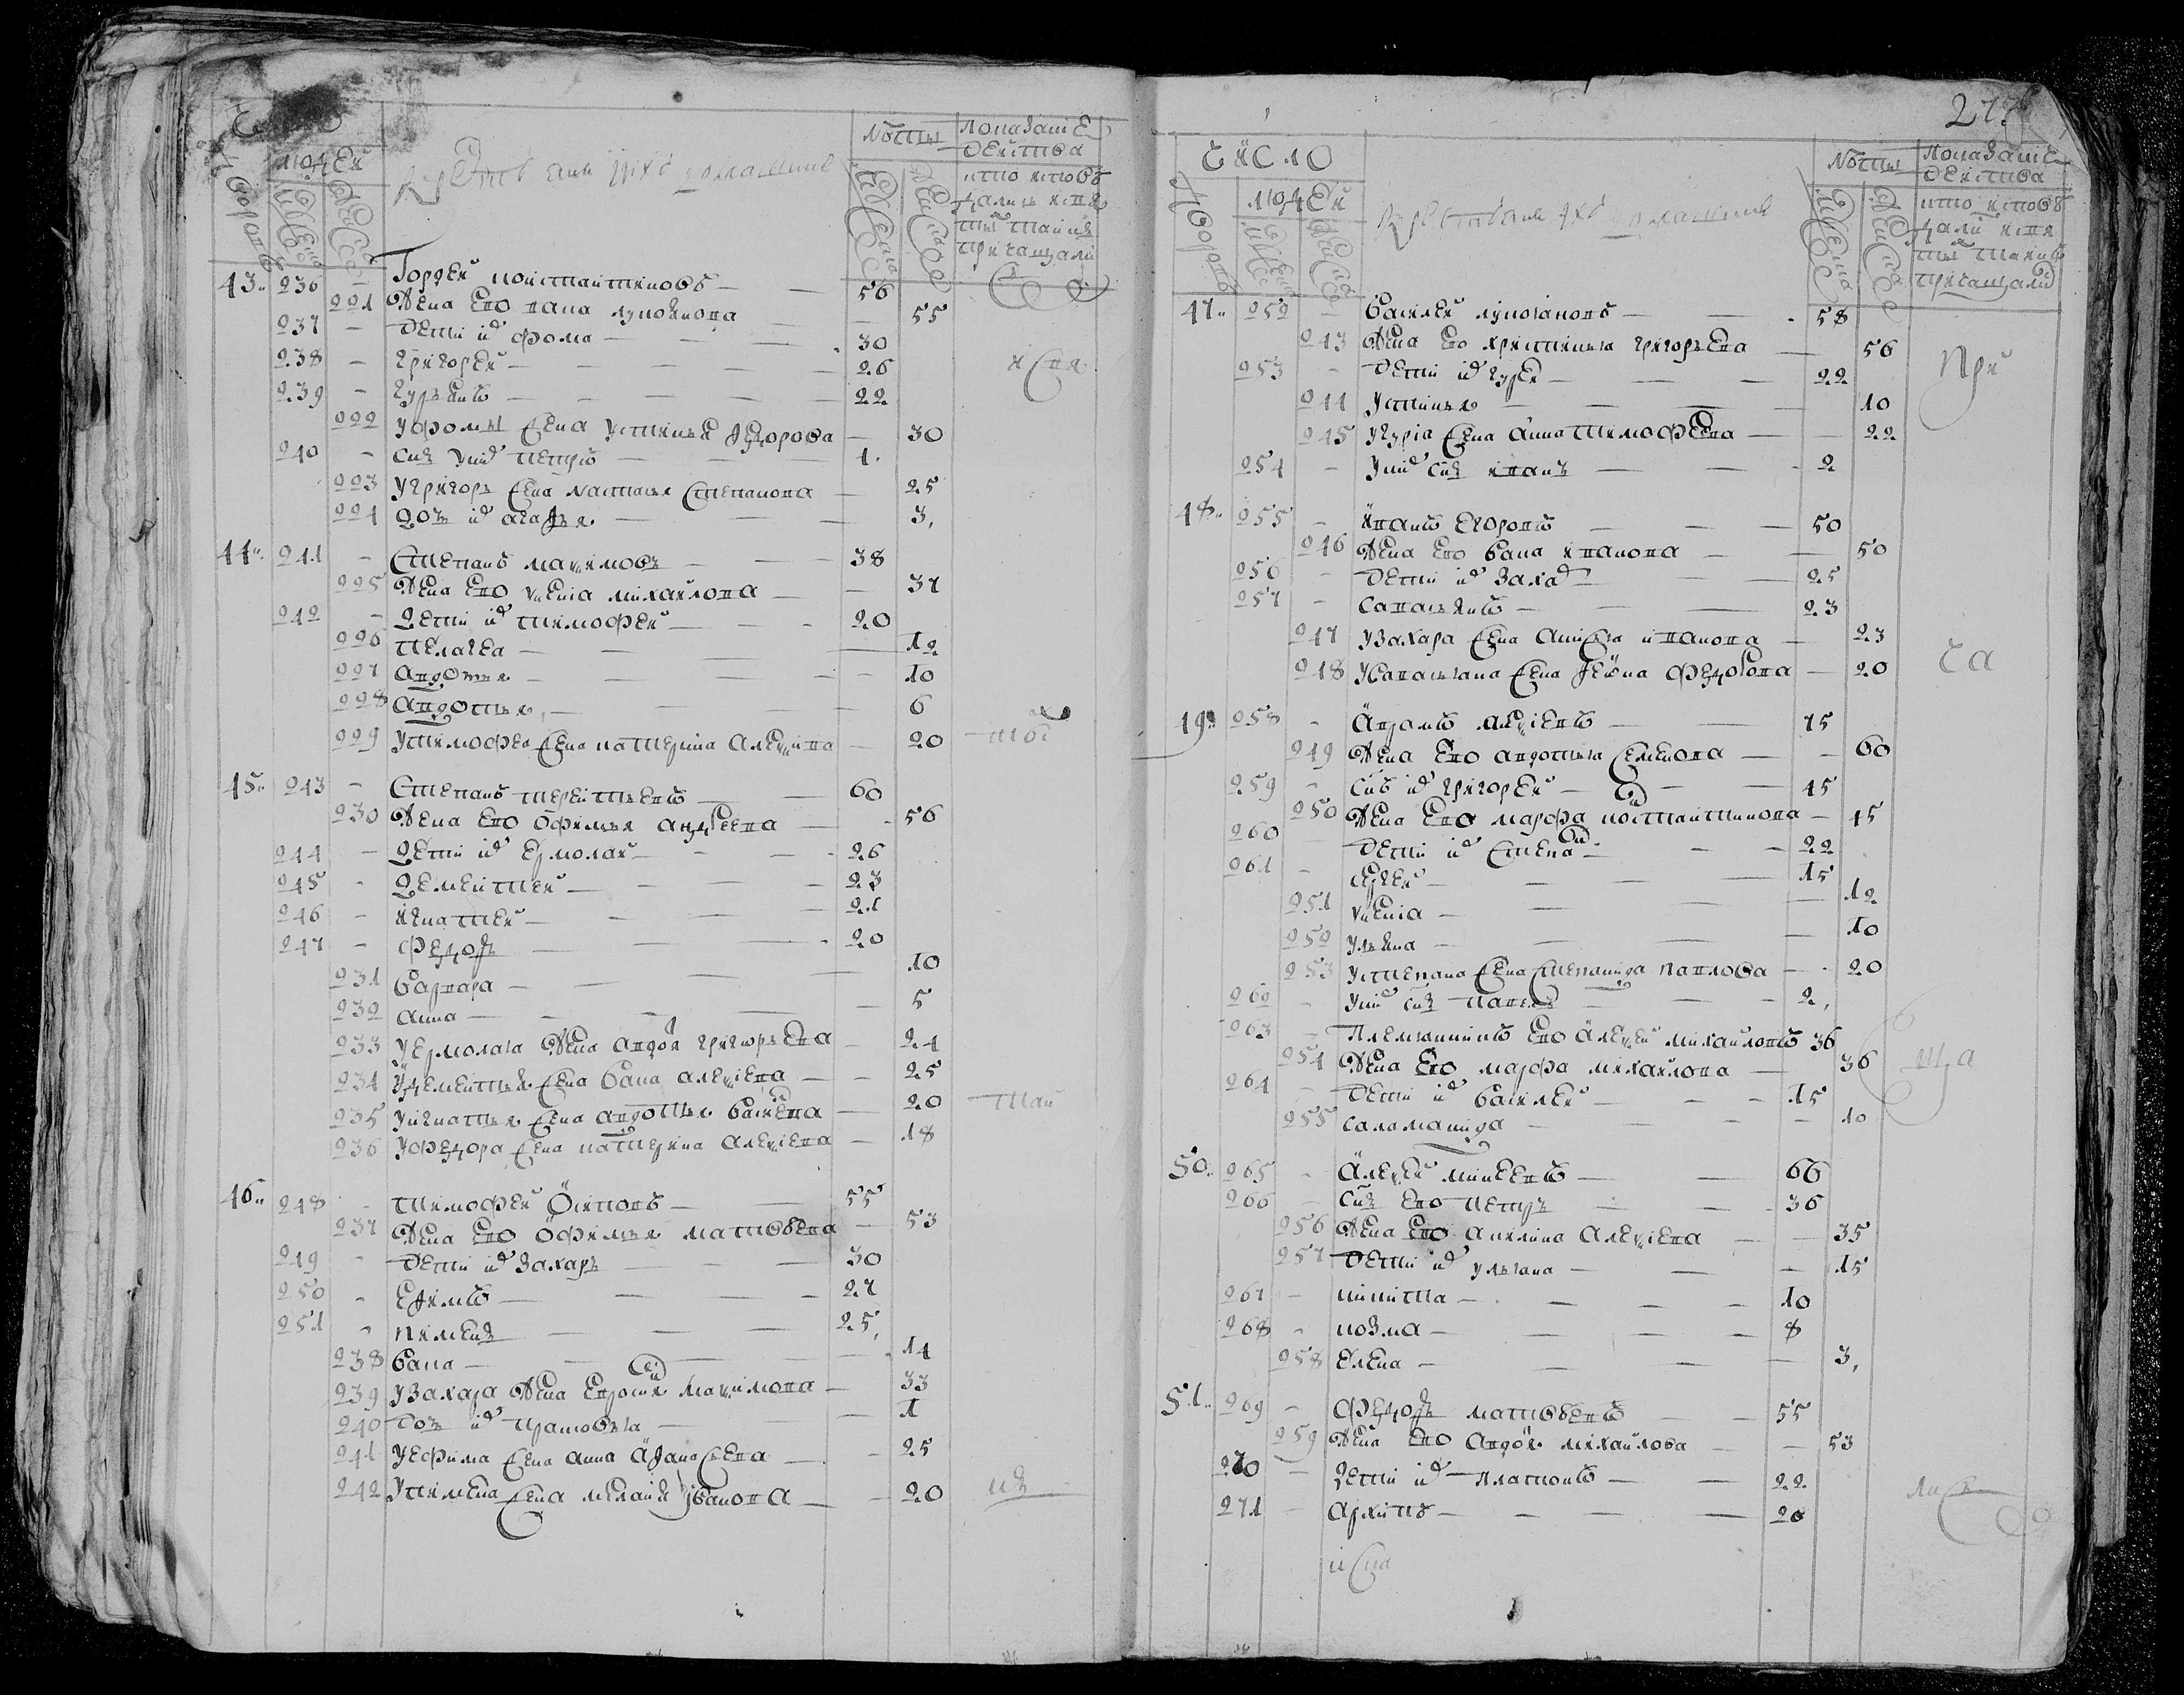 людей
Крестьяне и ихъ домашние
Лета
показание
действа
кто испове
дался и с҃вя
тых таинъ
причащали
43. 236 Гордей Констаnтиновъ 56
221 Жена ево Лукоянова 55
237 Дети их Фома 30
238 Григорей 26
239 Гурьянъ 22
222 У Фомы жена Устинья Федорова 30
240 Сн҃ъ у них Петръ 1
223 У Григорья жена Настасья Степанова 25
224 Дочь их Агафья 3
испо
44. 241 Степанъ Максимовъ 38
225 Жена ево Ксения Михайлова 37
242 Дети их Тимофей 20
226 Пелагея 12
227 Авдотья 10
228 Авдотья 6
229 У Тимофея жена Катерина Алексиева 20
45. 243 Степанъ Терентьевъ 60
230 Жена ево Офимья Андреева 56
244 Дети их Ермолай 26
245 Дементей 23
246 Игнатей 21
247 Федоръ 20
231 Варвара 10
232 Анна 5
233 У Ермолая жена Авдотья Григорьева 24
234 У Дементья жена Васа Алексиева 25
235 У Игнатья жена Авдотья Васильева 20
236 У Федора жена Катерина Алексиева 18
46. 248 Тимофей Осиповъ 55
237 Жена ево Офимья Матвеева 53
249 Дети их Захаръ 30
250 Ефимъ 27
251 Пименъ 25
238 Васа 14
239 У Захара жена Ефросинья Максимова 33
240 Дочь их Прасковья 1
241 У Ефима жена Анна Афанасьева 25
242 У Пимена жена Мелания Иванова 20
277
Число
людей
Крестьяне и их домашние
Лета
показание
действа
кто испове
дали и свя
тых таинъ
причащали
47. 252 Василей Лукояновъ 58
243 Жена ево Христинья Григорьева 56
253 Дети их Гурей 22
244 Устинья 10
245 У Гурiя жена Анна Тимофеева 22
254 У них сн҃ъ Иванъ 2
При
48. 255 Иванъ Егоровъ 50
246 Жена ево Васа Иванова 50
256 Дети их Захаръ 25
257 Савастьянъ 23
247 У Захара жена Анисья Иванова 23
248 У Савастьяна жена Фиона Федорова 20
ча
49. 258 Авраамъ Алексиевъ 75
249 Жена ево Авдотья Семенова 60
259 Сн҃ъ их Григорей 45
250 Жена ево Марфа Константинова 45
260 Дети их Степанъ 22
261 Сергей 15
251 Ксения 12
252 Ульяна 10
253 У Степана жена Степанида Павлова 20
262 У них сн҃ъ Павелъ 2
263 Племянникъ ево Алексей Михайловъ 36
254 Жена ево Марфа Михайлова 36
264 Дети их Василей 15
255 Саломанида 10
ща
50. 265 Алексей Минеевъ 66
266 Сн҃ъ ево Петръ 36
256 Жена ево Акилина Алексиева 35
257 Дети их Ульяна 15
267 Никита 10
268 Козма 8
258 Елена 3
51. 269 Федоръ Матвеевъ 55
259 Жена ево Авдотья Михайлова 53
270 Дети их Платонъ 22
271 Архипъ 20